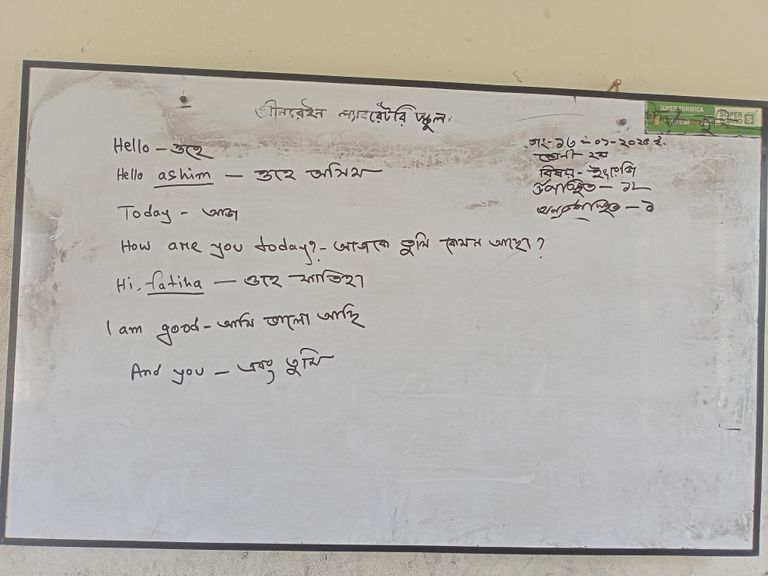 গ্রীনরেইন ল্যাবরেটরি স্কুল।
SUPER FORMICA
SUPER
শ্রেণী - ২য়
বিষয় - ইংরেজি
উপস্থিত - ১২
অনুপস্থিত - ১
Hello - ওহে
Hello ashim - ওহে অসিম
Today - আজ
How are you today? - আজকে তুমি কেমন আছো?
Hi, fatiha - ওহে ফাতিহা
I am good - আমি ভালো আছি
And you - এবং তুমি